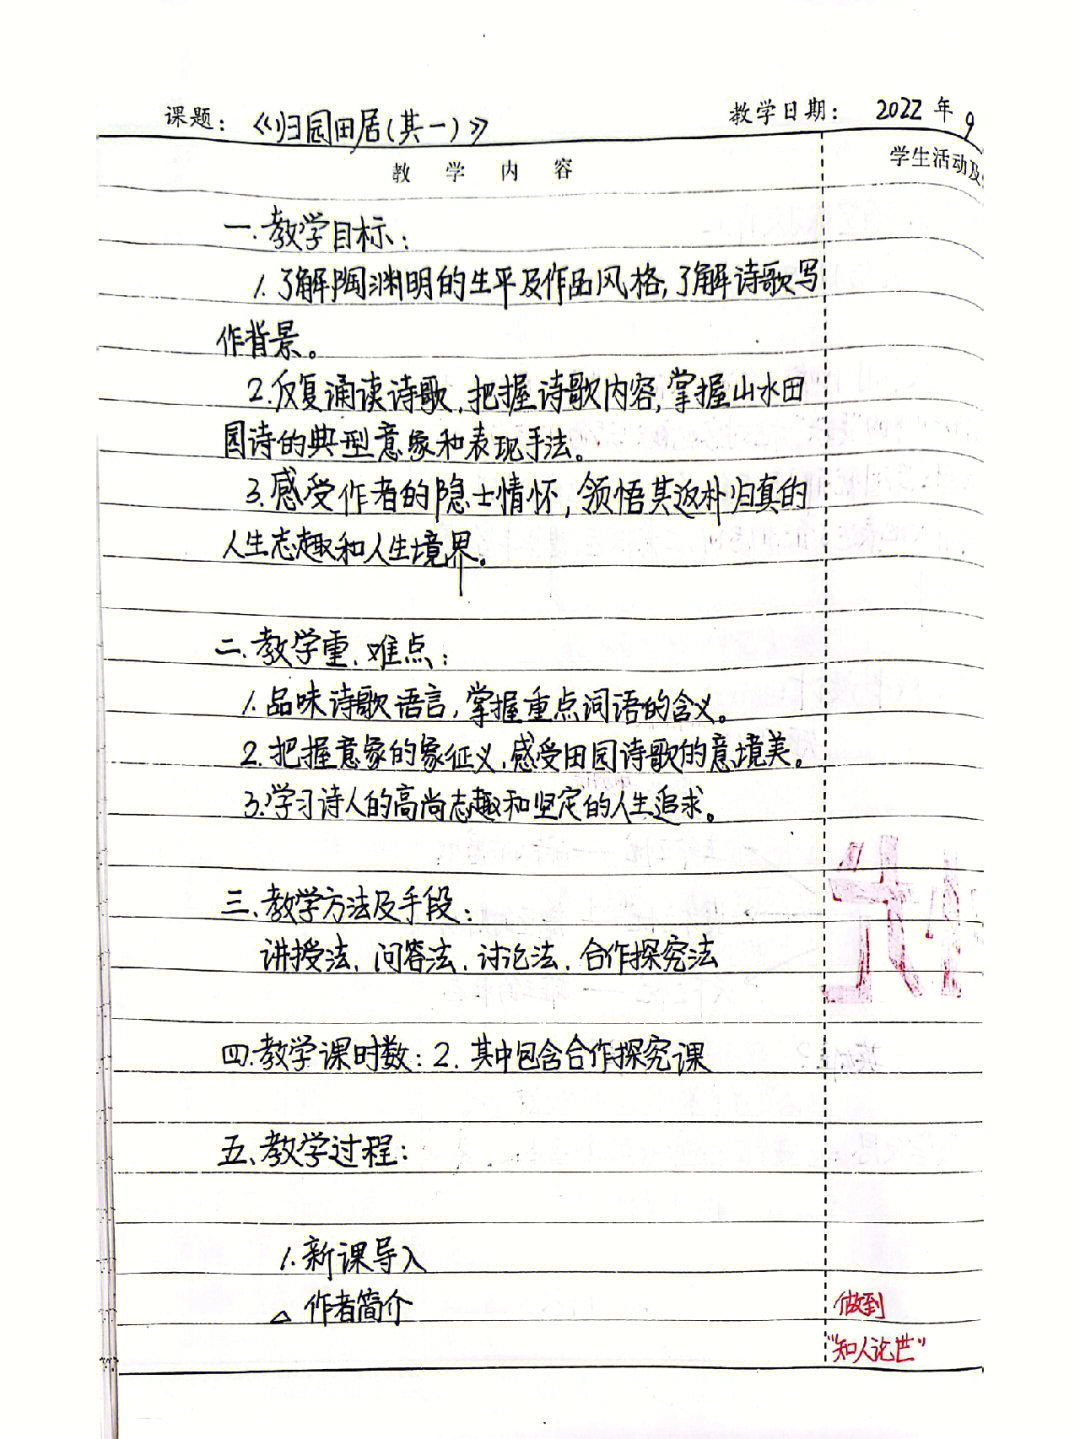 课题：《归园田居(其一)》 教学日期： 2022年9
教 学 内 容 学生活动及
一.教学目标：
1.了解陶渊明的生平及作品风格,了解诗歌写
作背景。
2.反复诵读诗歌,把握诗歌内容,掌握山水田
园诗的典型意象和表现手法。
3.感受作者的隐士情怀,领悟其返朴归真的
人生志趣和人生境界。
二.教学重、难点：
1.品味诗歌语言,掌握重点词语的含义。
2.把握意象的象征义,感受田园诗歌的意境美。
3.学习诗人的高尚志趣和坚定的人生追求。
三、教学方法及手段：
讲授法、问答法、讨论法、合作探究法
四.教学课时数：2.其中包含合作探究课
五、教学过程：
1.新课导入
△ 作者简介 做到
"知人论世"